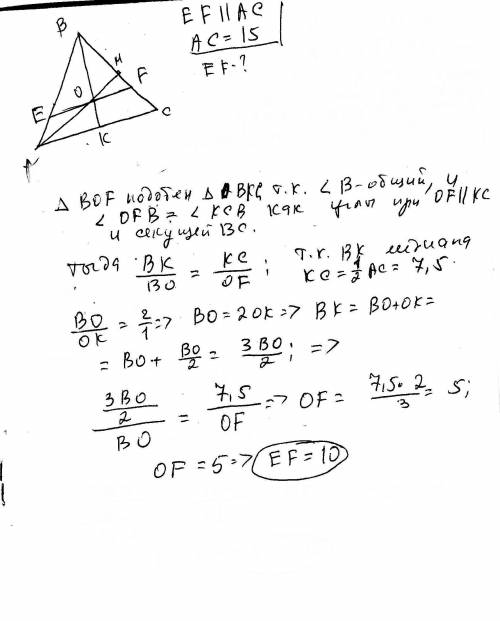 B
M
F
O
E
C
K
A
EF || AC
AC = 15
EF-?
△ BOF подобен △ BKC, т.к. ∠ B-общий, и
∠ OFB = ∠ KCB как углы при OF || KC
и секущей BC.
тогда BK/BO = KC/OF; т.к. BK медиана
KC = 1/2 AC = 7,5.
BO/OK = 2/1 => BO = 2OK => BK = BO+OK =
= BO + BO/2 = 3BO/2; =>
(3BO/2)/BO = 7,5/OF => OF = 7,5·2/3 = 5;
OF = 5 => EF = 10